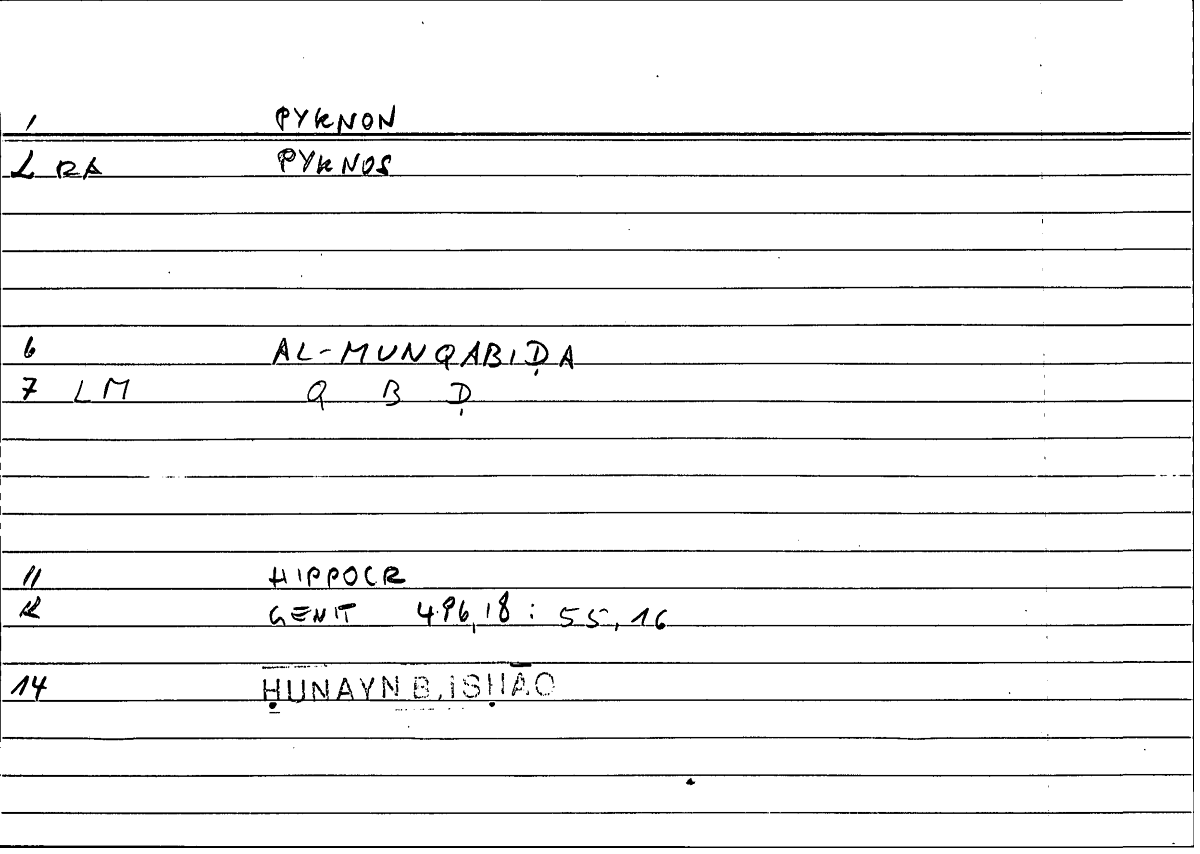 1 PYKNON
2 RA PYKNOS
6 AL-MUNQABIḌA
7 LM Q B Ḍ
11 HIPPOCR
12 GENIT 496,18 : 55,16
14 ḤUNAYN B. ISḤĀQ